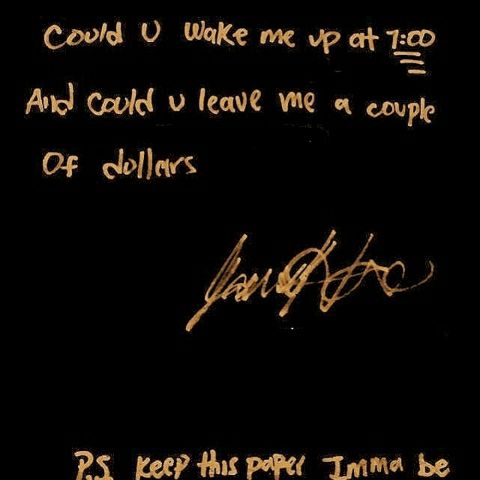 Could U wake me up at 7:00
And could u leave me a couple
Of dollars
P.S keep this paper Imma be